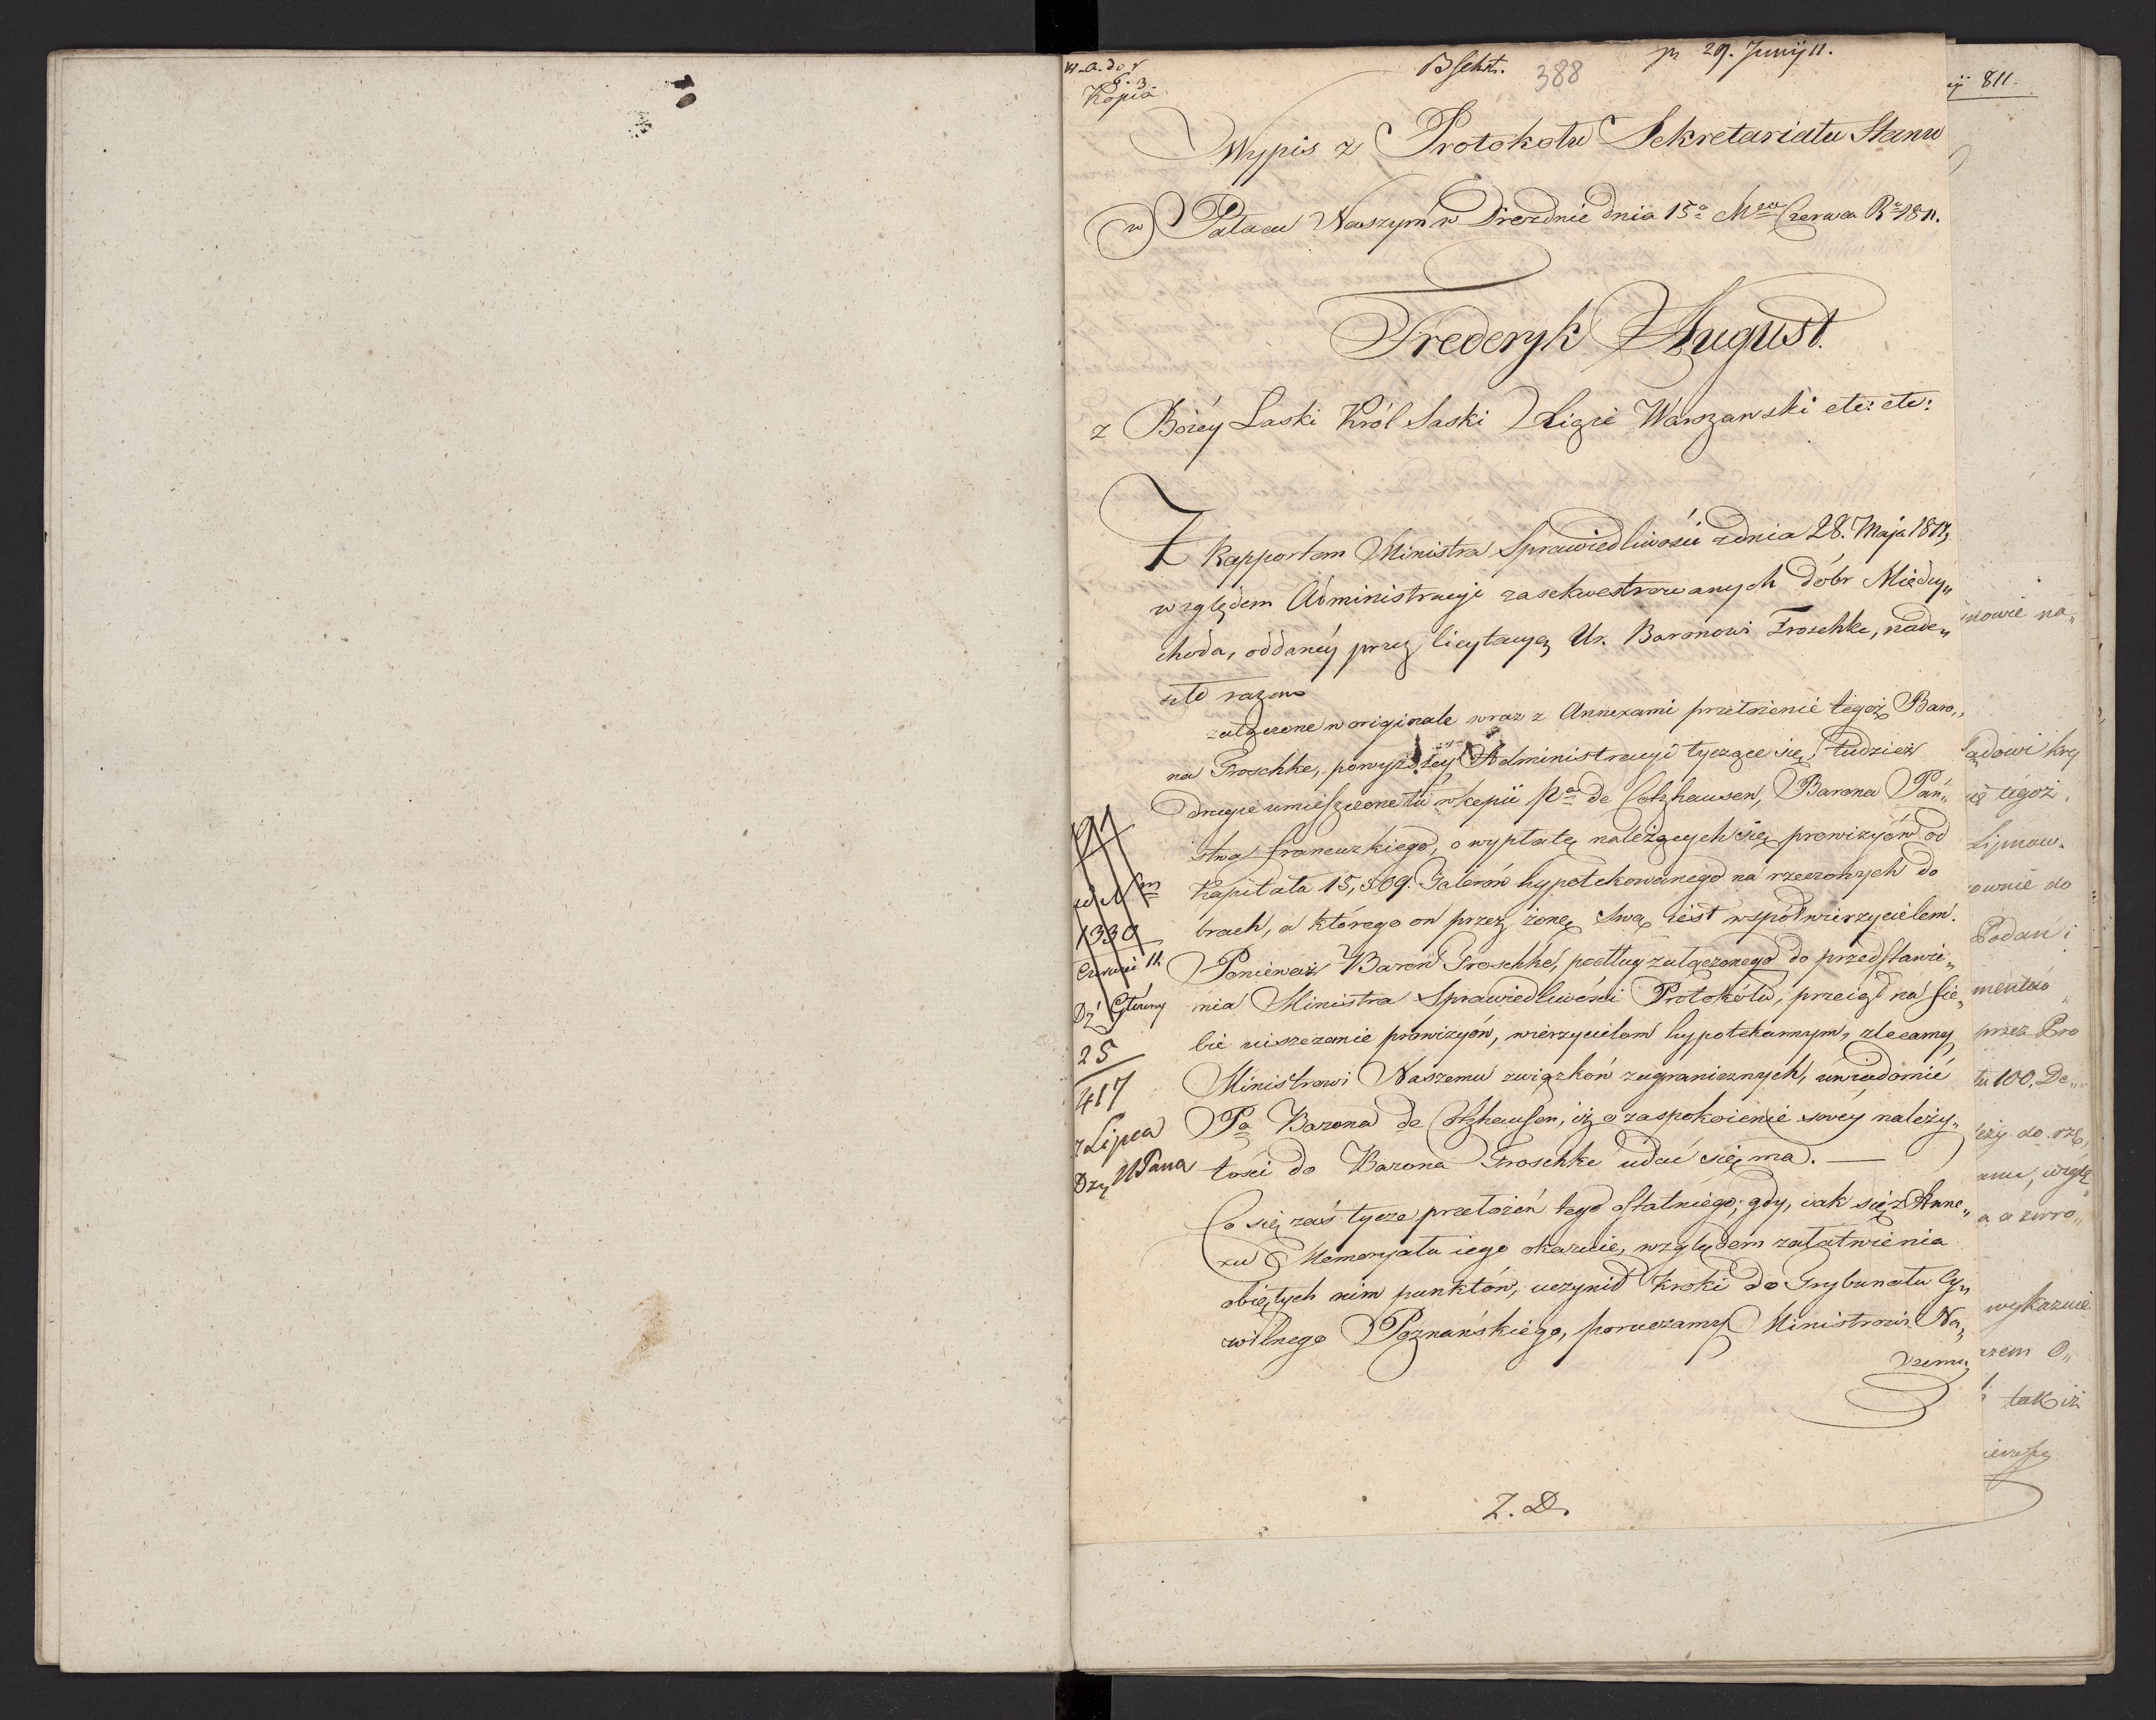 Kopia
388
pr 29. Junij 11.
Wypis z Protokołu Sekretariatu Stanu
w Pałacu Naszym w Dreznie dnia 15º Mca Czerwca Rº 1811.
Frederyk August.
z Bożey Łaski Król Saski Xiąże Warszawski etc: etc:
Z Rapportem Ministra Sprawiedliwości z dnia 28. Maja 1811,
względem Administracyi zasekwestrowanych dóbr Między„
choda, oddanéy przez licytacyę Ur. Baronowi Troschke, nade„
szło razem
załączone w originale wraz z Annexami przełożenie tegoż Baro„
na Troschke, powyższey Administracyi tyczące się, tudzież
drugie umieszczone tu w kopii Pa de Cotzhausen, Barona Pań„
stwa francuzkiego, o wypłatę należących się prowizyów od
Kapitału 15,509. Talerów hypotekowanego na rzeczonych do
brach, a którego on przez żonę Swą iest współwierzycielem.
Ponieważ Baron Troschke, podług załączonego do przedstawie„
nia Ministra Sprawiedliwości Protokółu, przeiął na sie„
bie uiszczenie prowizyów, wierzycielom hypotekarnym, zlecamy
Ministrowi Naszemu związków zagranicznych, uwiadomić
Pa Barona de Cotzhausen, iż o zaspokoienie swéy należy„
tości do Barona Troschke udać się ma. —
Co się zaś tycze przełożeń tego ostatniego; gdy, iak się z Anne„
xu Memoryału iego okazuie, względem załatwienia
obiętych nim punktów, uczynił kroki do Trybunału Cy„
wilnego Poznańskiego, poruczamy Ministrowi Na„
szemu
1330
Czerwca 11
Dź Główny
25
417
z Lipca
Dzy UPana
Z. D.
811.
mowie na„
ądowi kry
tegoż
Lipnow.
ownie do
Podań i
mentów
przez Pro
tu 100. De„
leży do rzę
a o zwro„
wykazuie
azem O„
tak iż